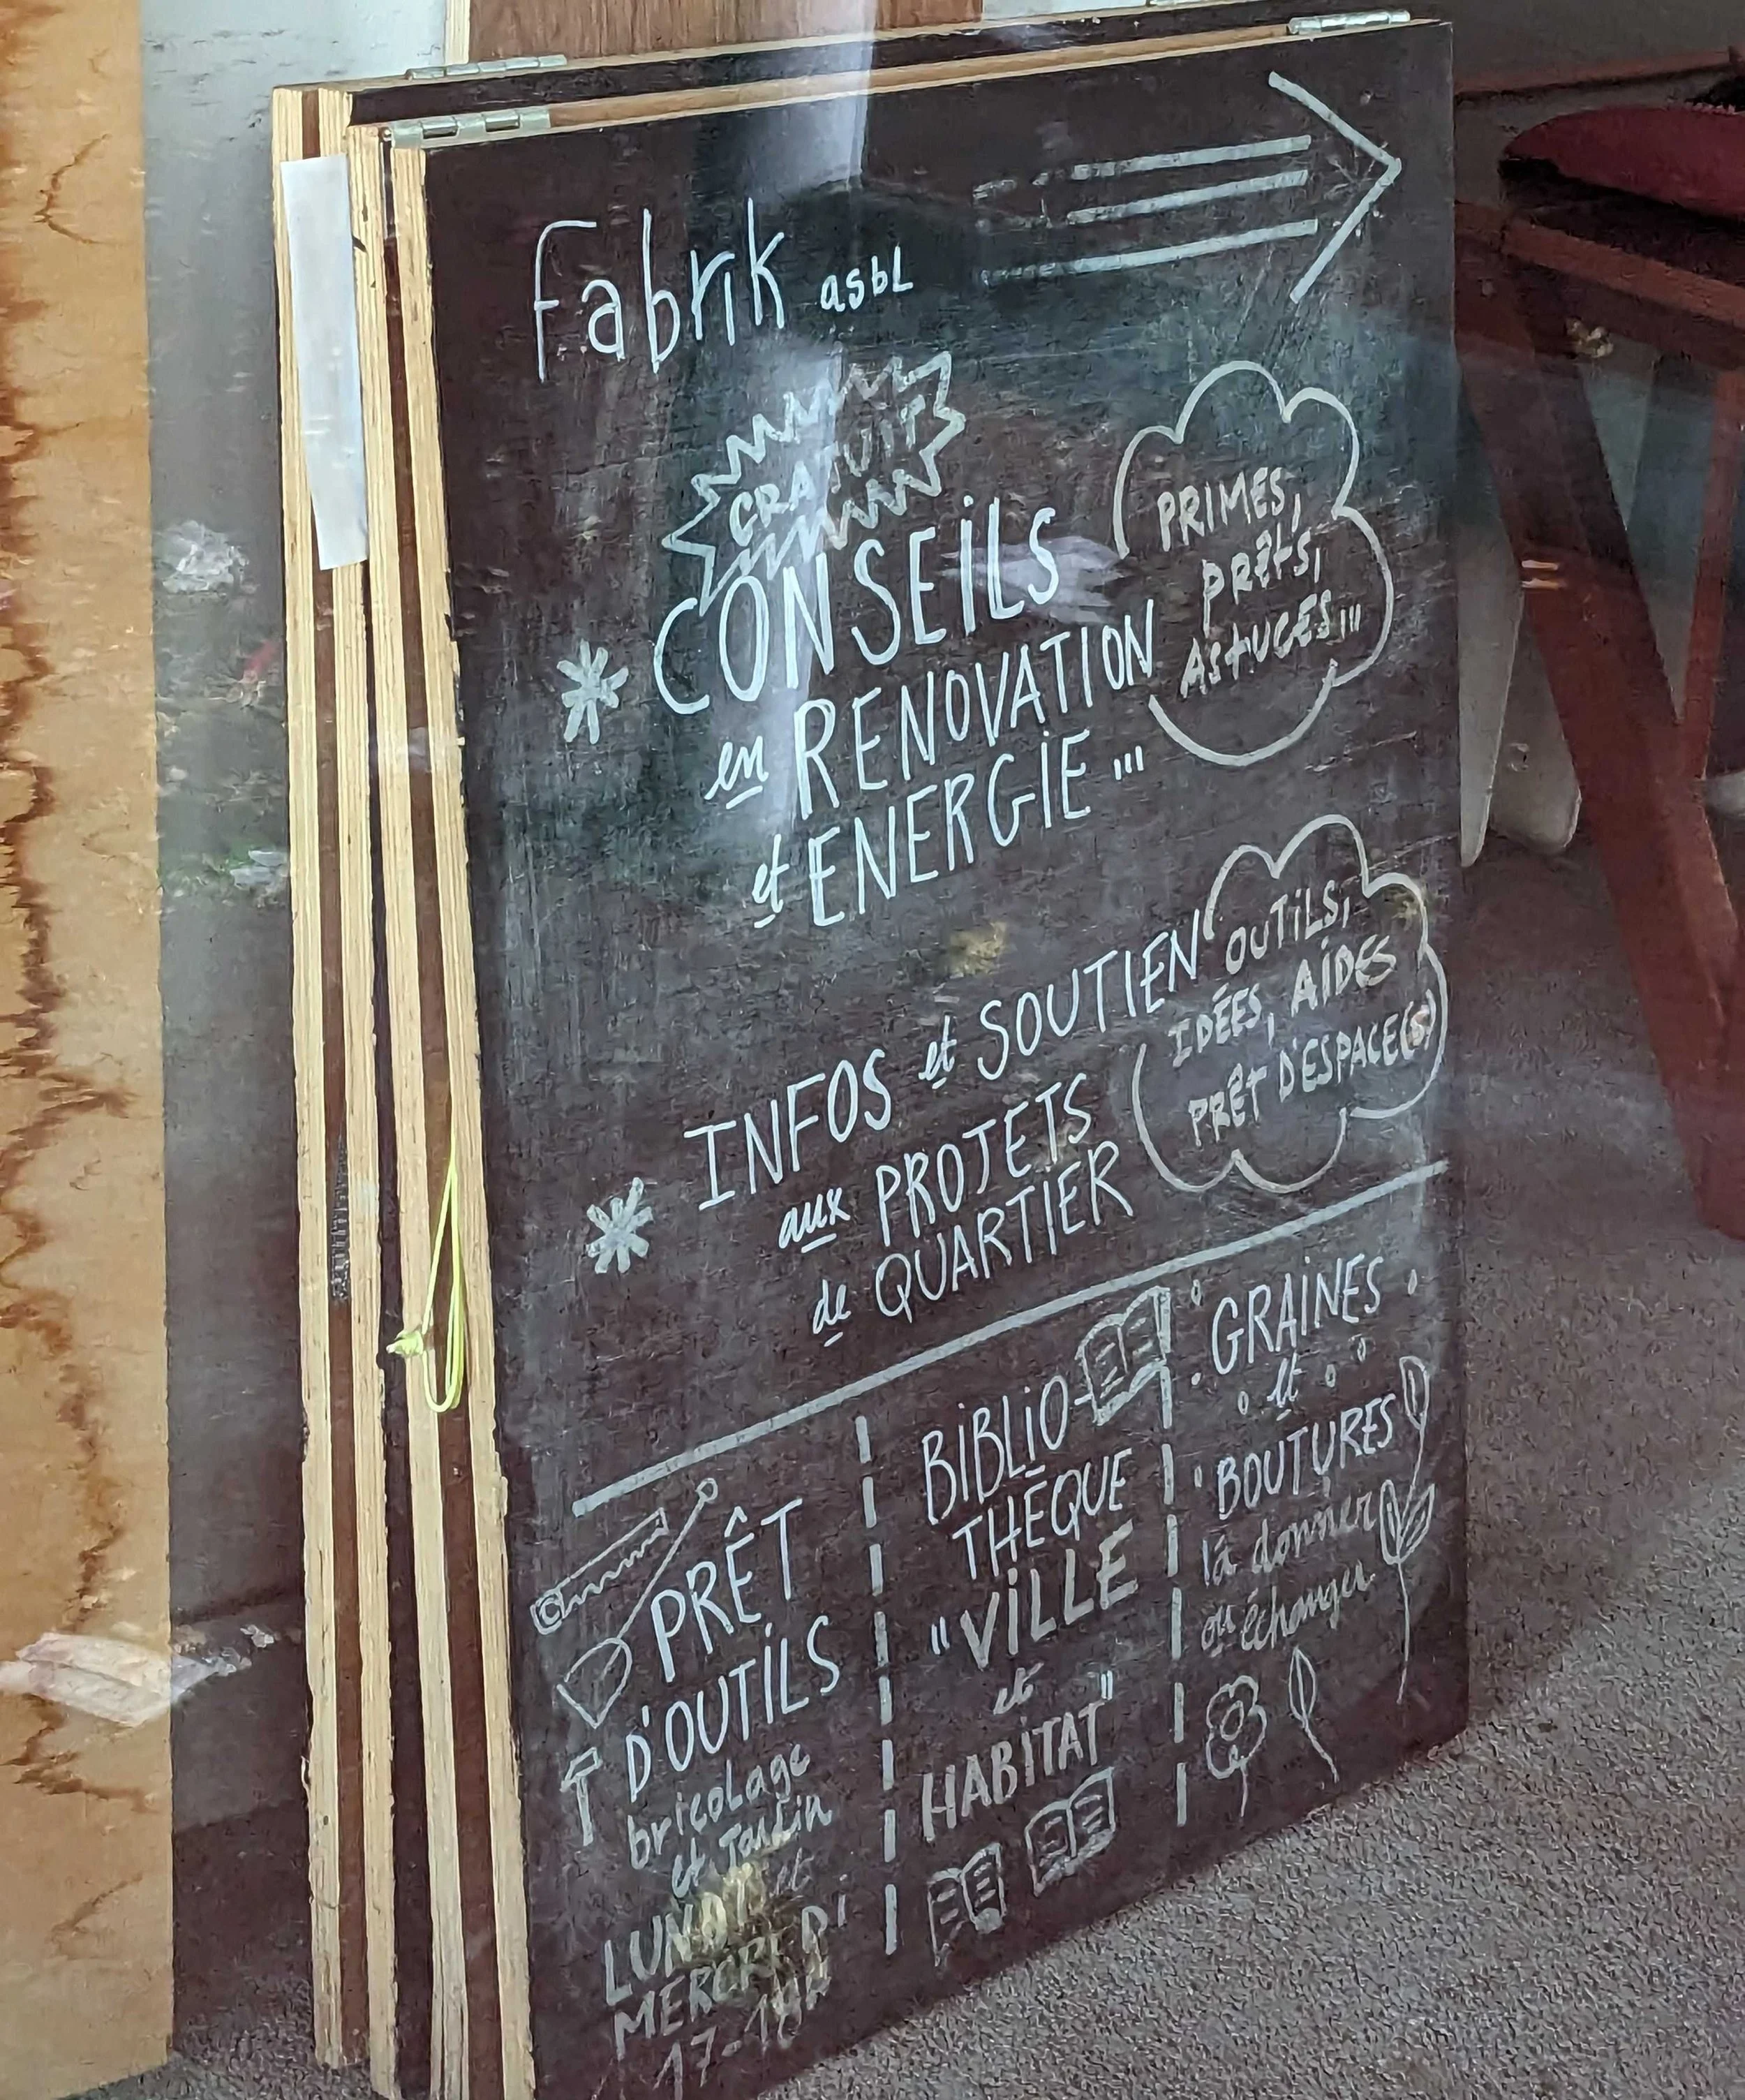 Fabrik asbl
GRATUIT
* CONSEiLS
en RENOVATION
et ENERGiE...
PRIMES,
PRÊtS,
AStUCES...
* INFOS et SOUTIEN
aux PROJETS
de QUARTIER
OUTiLS,
IDÉES, AiDES
PRÊT D'ESPACE(S)
PRÊT
D'OUTiLS
bricolage
et Jardin
LUNDI et
MERCREDI
17-
BiBLiO-
THÈQUE
"ViLLE
et
HABiTAT"
GRAiNES
et
BOUTURES
à donner
ou échanger